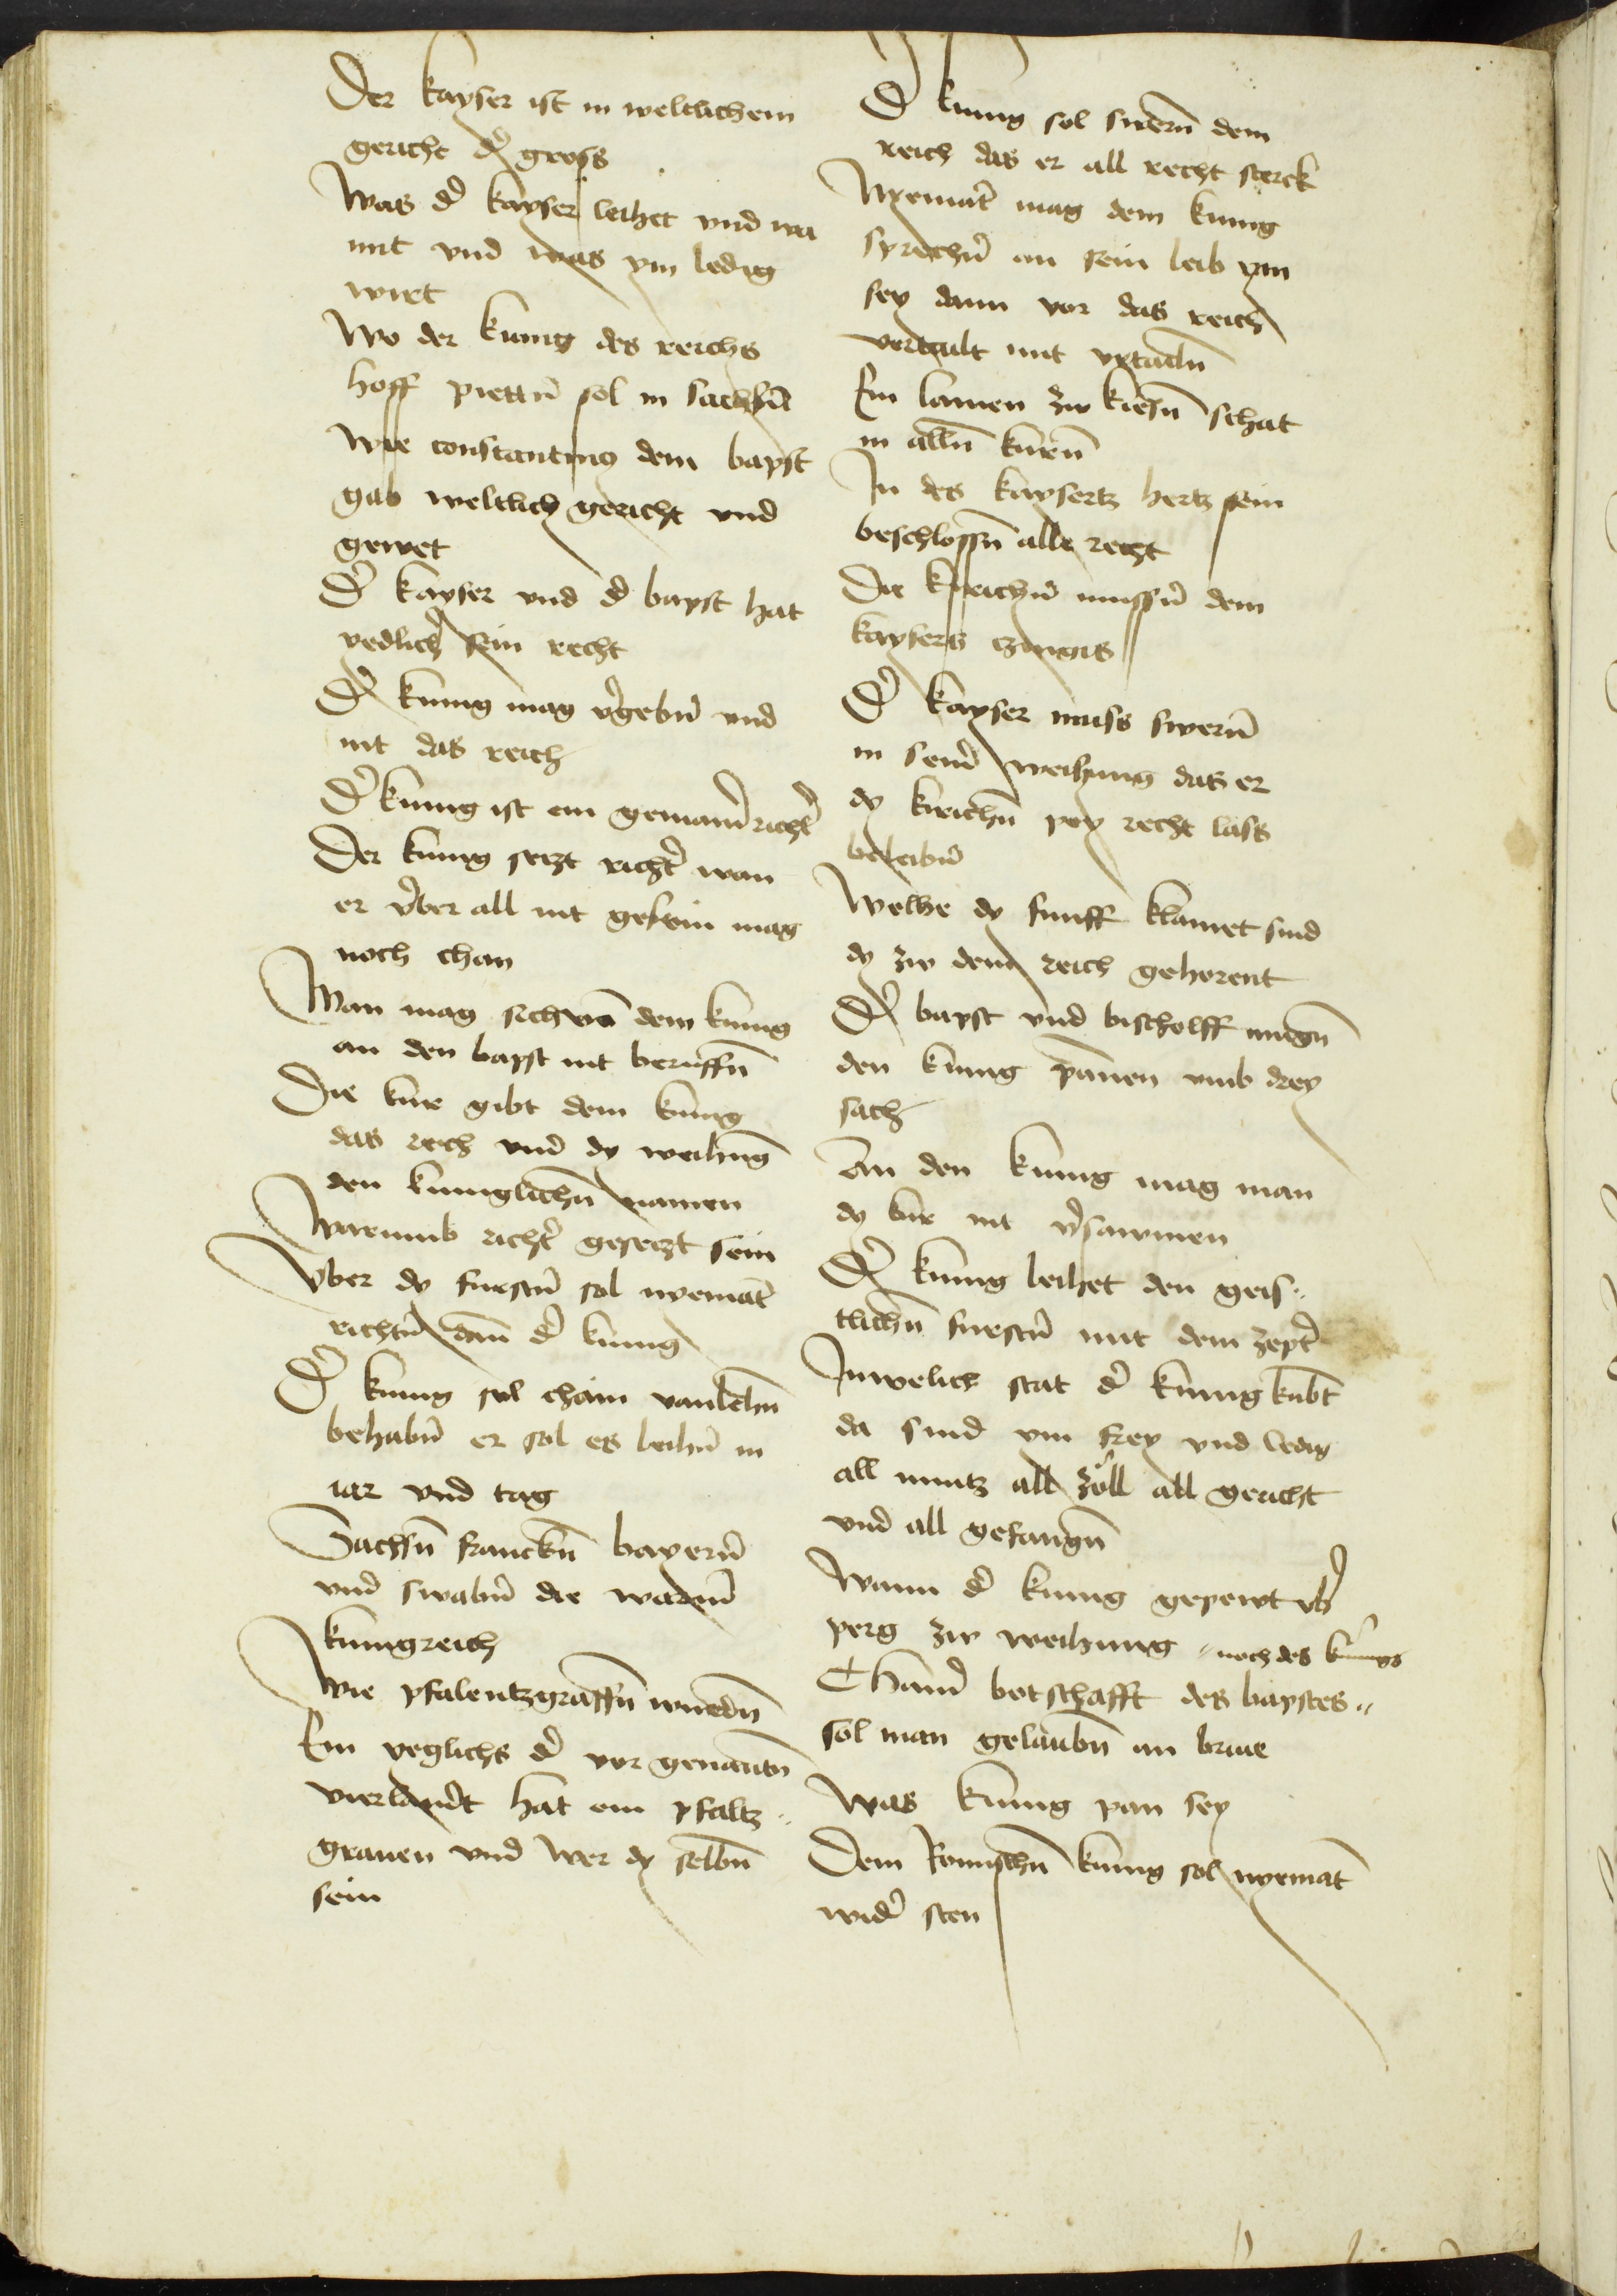 Der kayser ist in weltlichem
gericht d' gross
Was d' kayser leihet vnd wa
mit vnd was ym ledig
wirt
Wo der kunig des reichs
hoff piettn̄ sol in sachsn̄
Wie constantinus dem bapst
gab weltlich gericht vnd
gewet
D' kayser vnd d' bapst hat
yedlich' sein recht
D' kunig mag v'gebn̄ vnd
nit das reich
D' kunig ist ein gemain' richt'
Der kunig setzt richt' wan
er vber all nit gesein mag
noch chan
Man mag sich von dem kunig
an den bapst nit beruffn̄
Die kur gibt dem kunig
das reich vnd dy weihung
den kuniglichn̄ namen
Warumb richt' gesetzt sein
Vber dy furstn̄ sol nyemāt
richtn̄ dan̄ d' kunig
D' kunig sol chain vanlehn̄
behabn̄ er sol es leihn̄ in
iar vnd tag
Sachsn̄ franckn̄ bayern̄
vnd swabn̄ die warn̄
kunigreich
Wie pfalentzgraffn̄ wurdn̄
Ein yeglichs d' vor genantn̄
vierlandt hat ein pfaltz
grauen vnd wer dy selbn̄
sein
D' kunig sol swern̄ dem
reich das er all recht sterck
Nyemāt mag dem kunig
sprechn̄ an sein leib ym
sey dann vor das reich
vertailt mit vrtailn̄
Ein lamen zw kiesn̄ schat
in alln̄ kurn̄
In des kaysertz hertz sein
beschlossn̄ alle recht
Die kreichn̄ mussn̄ dem
kaysers
D' kayser muss swern̄
in sein' weihung das er
dy kreichn̄ pey recht lass
beleibn̄
Welhe dy funff klainet sind
dy zw dem reich gehorent
D' bapst vnd bischolff mugn̄
den kunig pannen vmb drey
sach
An den kunig mag man
dy kur nit v'sawmen
D' kunig leihet den geis
tlichn̄ furstn̄ mit dem zept'
Inwelich stat d' kunig kūbt
da sind ym frey vnd ledig
all muntz all zöll all gericht
vnd all gefangn̄
Wann d' kunig gepewt vb'
perg zw weihung noch des kunigs
Chain' botschafft des bapstes
sol man gelaubn̄ an briue
Was kunig pan sey
Dem Romischn̄ kunig sol nyemāt
wid' sten